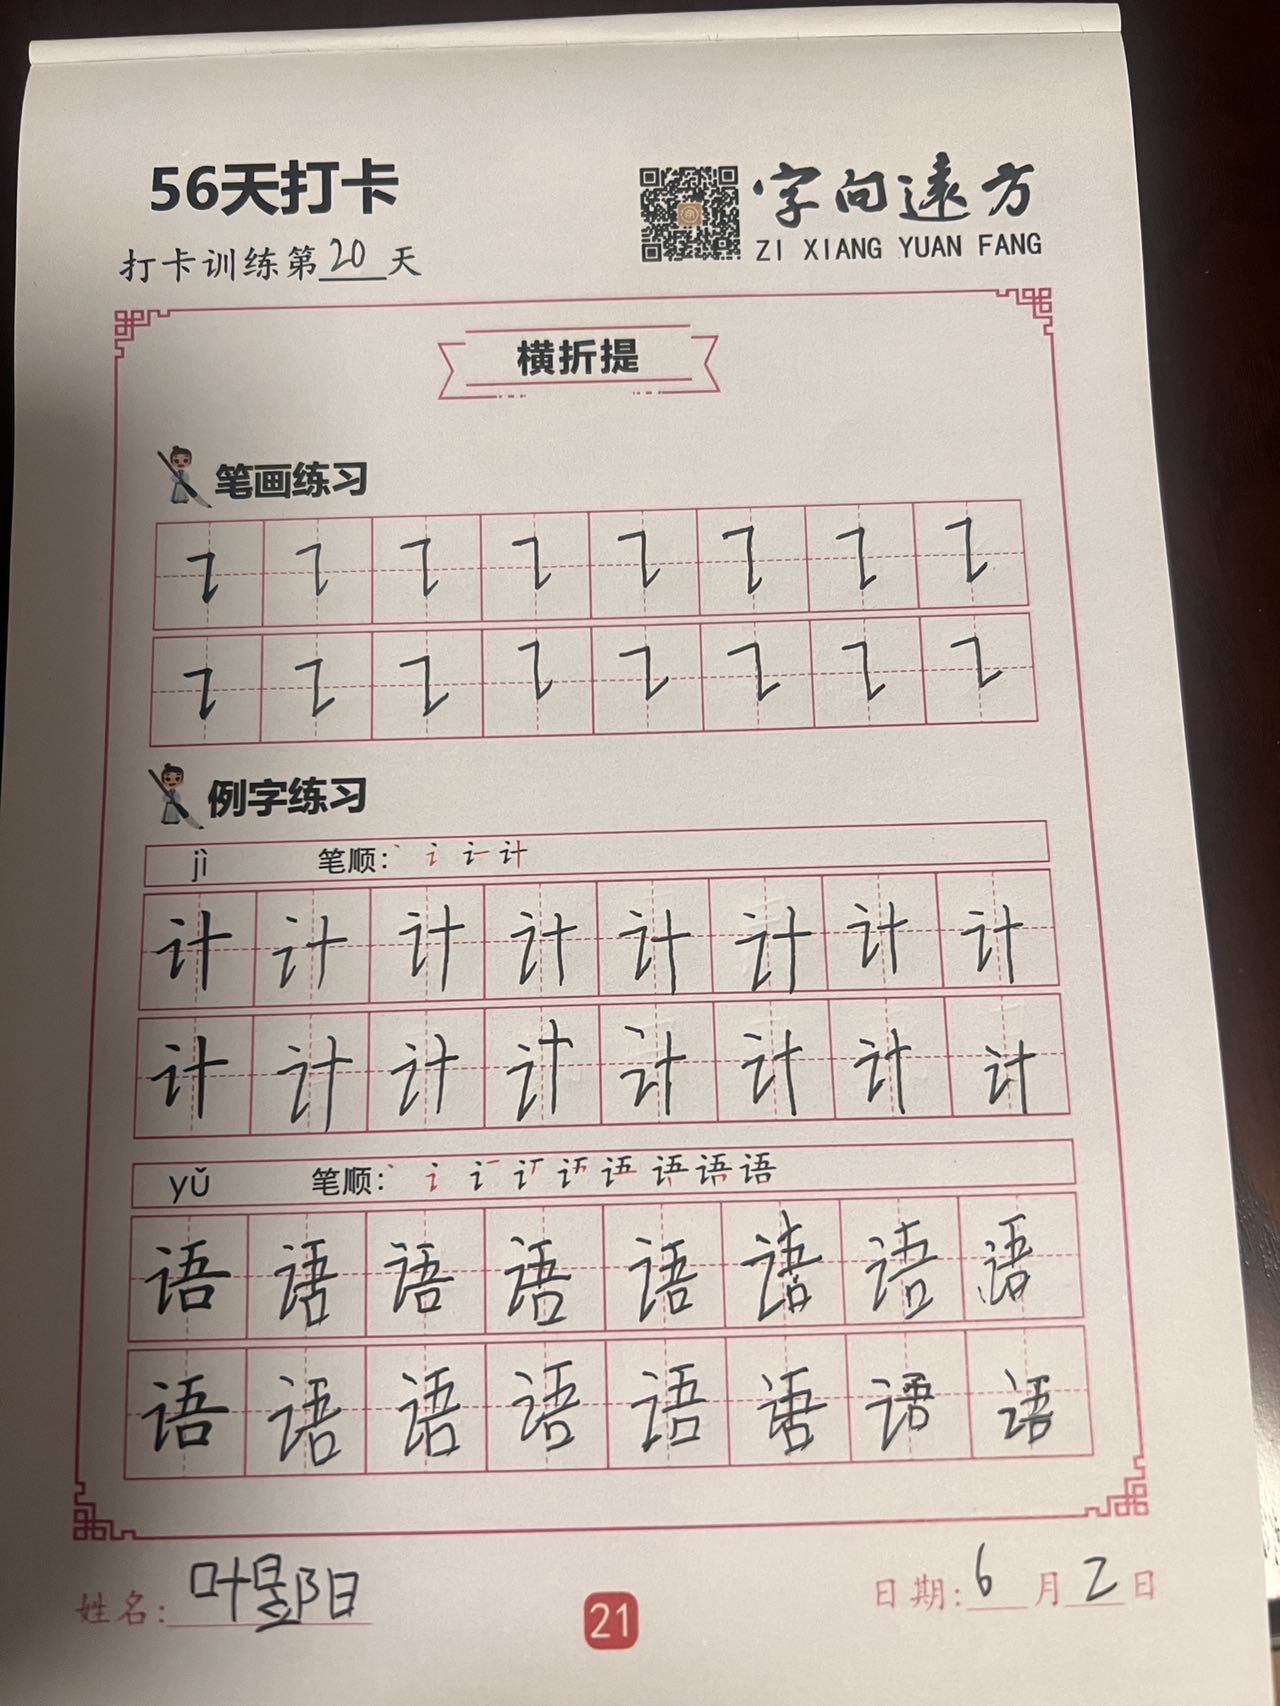 56天打卡
字向远方
打卡训练第20天
ZI XIANG YUAN FANG
横折提
笔画练习
㇊ ㇊ ㇊ ㇊ ㇊ ㇊ ㇊ ㇊
㇊ ㇊ ㇊ ㇊ ㇊ ㇊ ㇊ ㇊
例字练习
jì 笔顺:
计 计 计 计 计 计 计 计
计 计 计 计 计 计 计 计
yǔ 笔顺:
语 语 语 语 语 语 语 语
语 语 语 语 语 语 语 语
姓名: 叶 阳 日期: 6 月 2 日
21